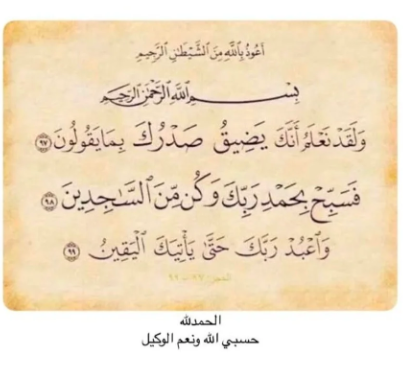 أعوذ بالله من الشيطن الرجيم
بسم الله الرحمن الرحيم
ولقد نعلم أنك يضيق صدرك بما يقولون ٩٧
فسبح بحمد ربك وكن من السٰجدين ٩٨
واعبد ربك حتىٰ يأتيك اليقين ٩٩
الحجر ٩٧ - ٩٩
الحمدلله
حسبي الله ونعم الوكيل